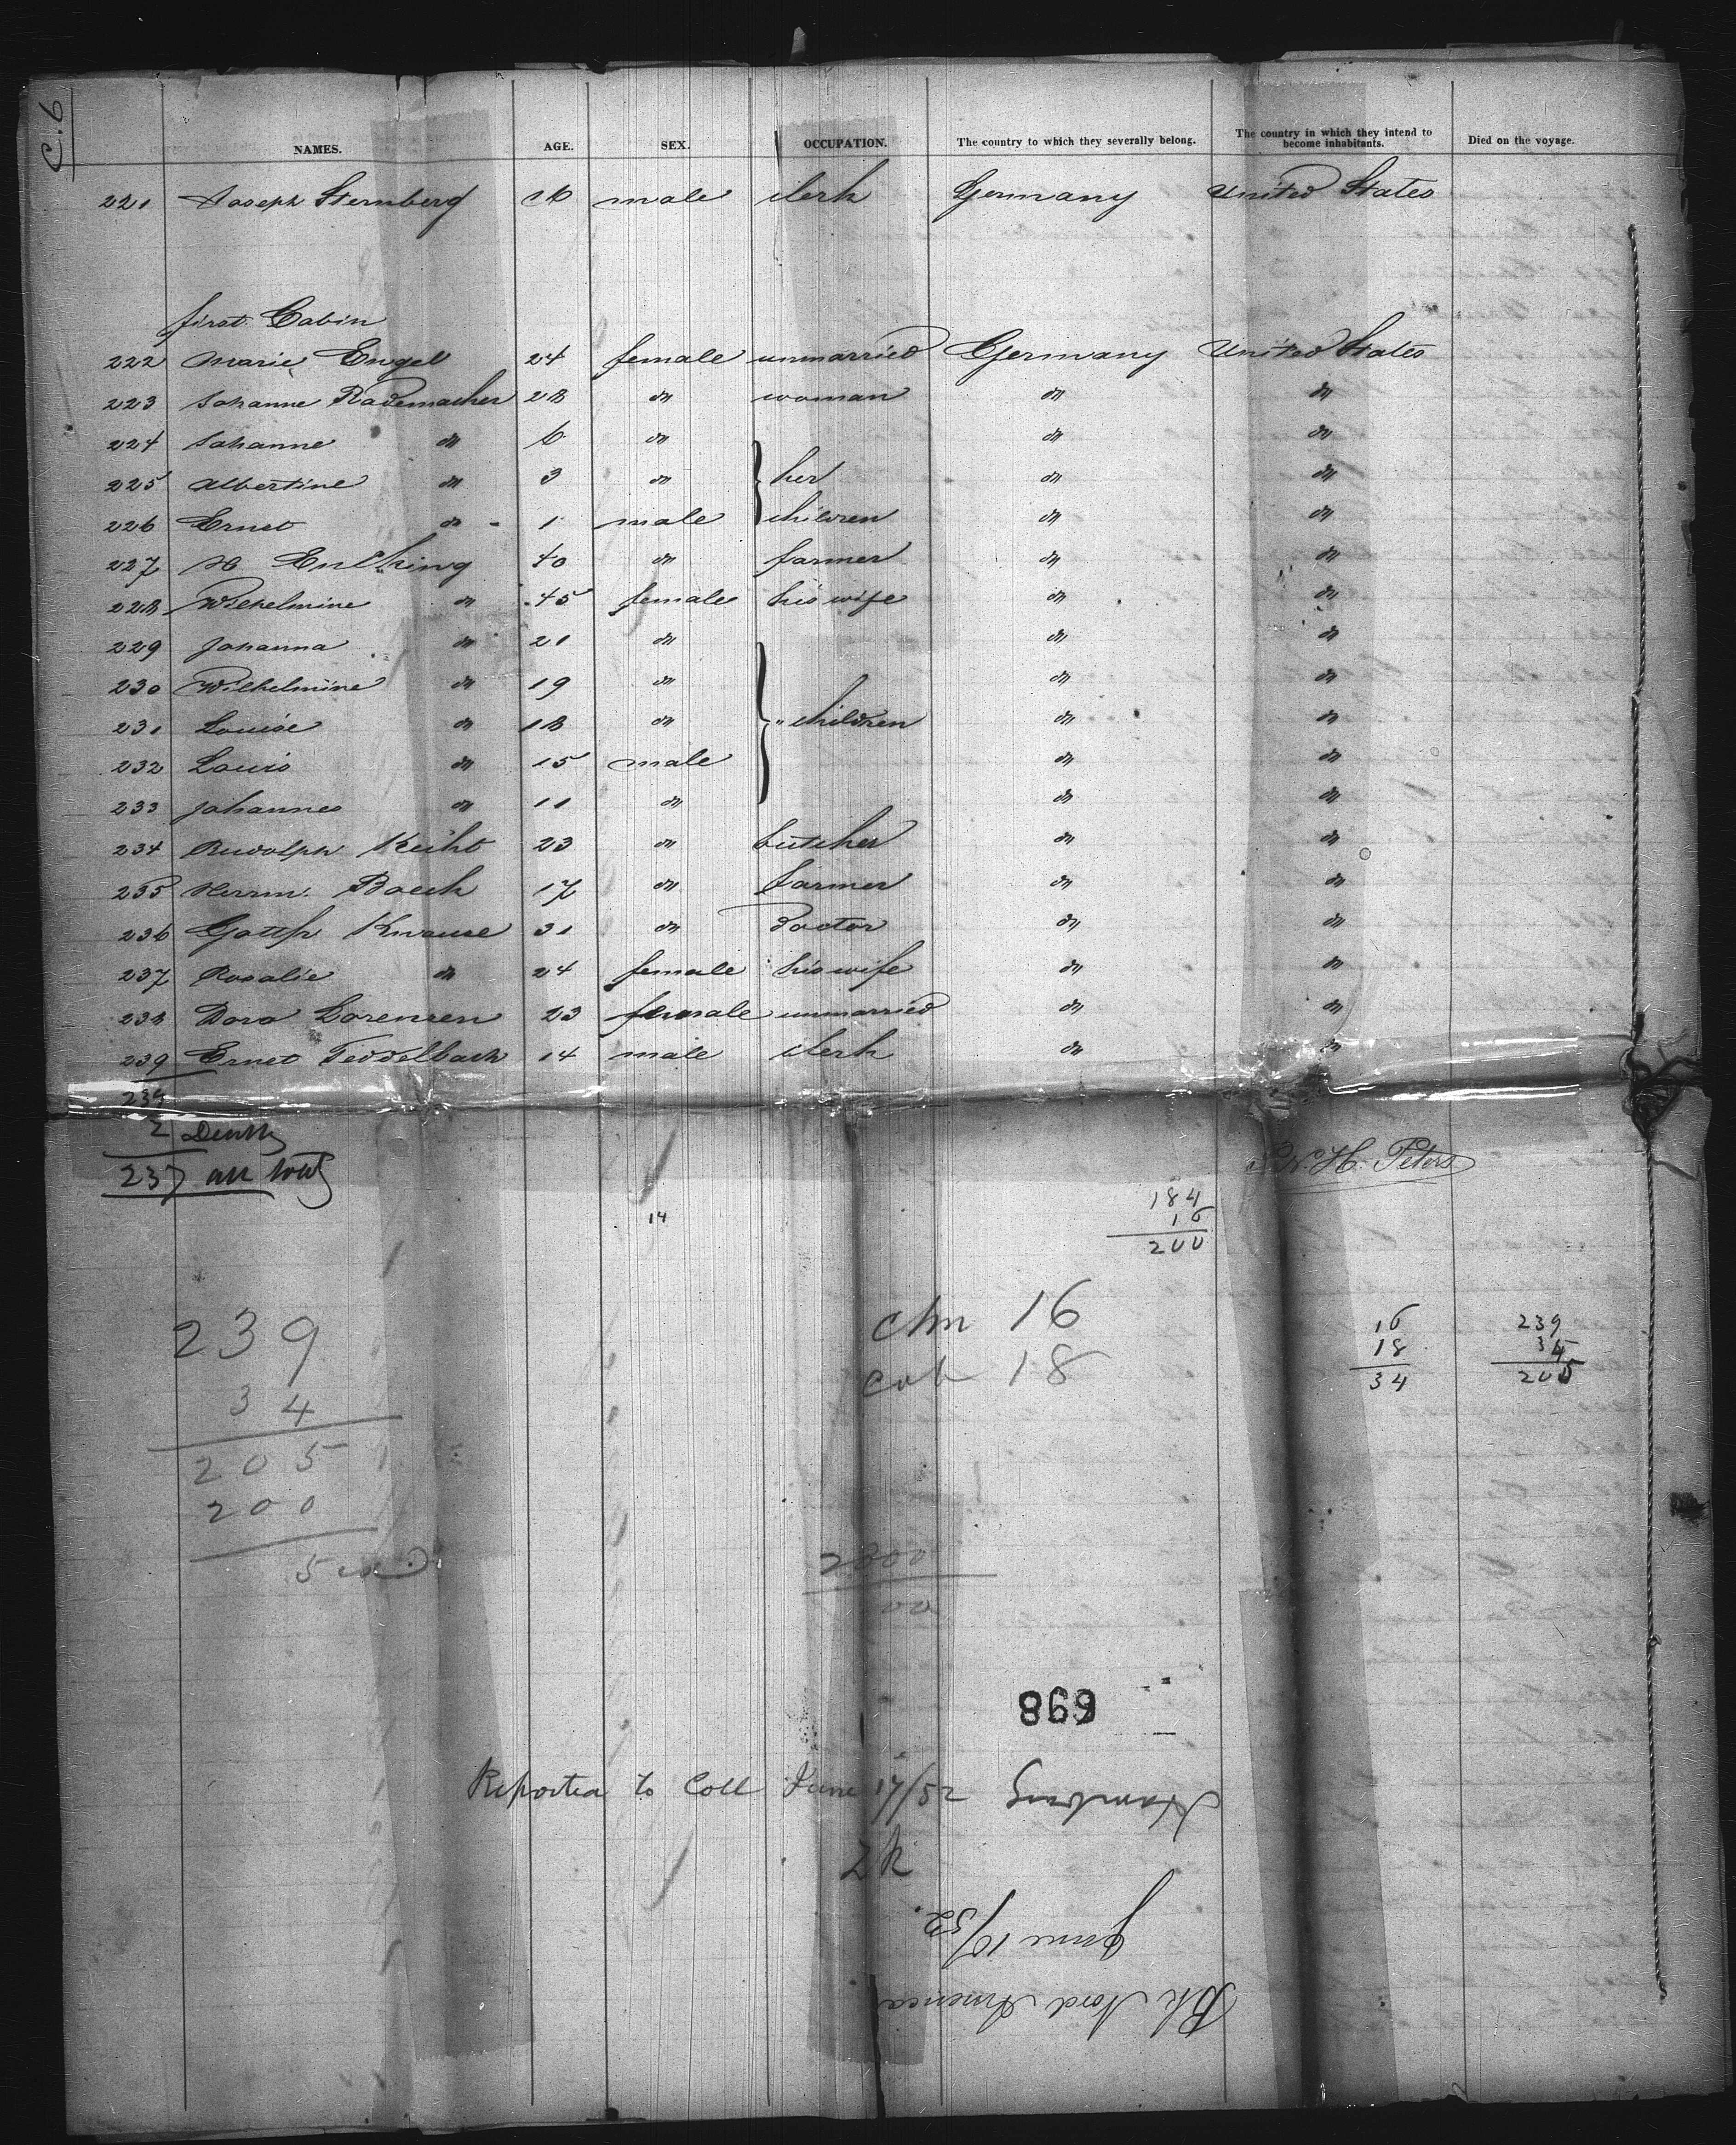 C. 6
NAMES. AGE. SEX. OCCUPATION. The country to which they severally belong. The country in which they intend to become inhabitants. Died on the voyage.
221 Joseph Sternberg male clerk Germany United States
first Cabin
222 Marie Engel 24 female unmarried Germany United States
223 Johanne Rademacher 28 " woman " "
224 Johanne " 6 " " "
225 Albertine " 3 " her " "
226 Ernst " 1 male children " "
227 H 40 " farmer " "
228 Wilhelmine " 45 female his wife " "
229 Johanna " 21 " " "
230 Wilhelmine " 19 " " "
231 Louise " 18 " " children " "
232 Louis " 15 male " "
233 Johannes " 11 " " "
234 Rudolph 23 " butcher " "
235 Herrm. 17 " farmer " "
236 Gottfr Knause 31 " Doctor " "
237 Rosalie " 24 female his wife " "
238 Dora Lorenzen 23 female unmarried " "
239 Ernst Teddelbach 14 male clerk " "
239
2 Deaths
237 all told
H. Peters
14
184
16
200
239
34
205
200
5
chn 16
cab 18
16
18
34
239
34
205
2300
00
698
Reported to Coll June 17/52
Hamburg
June 10/52.
Bk Nord America